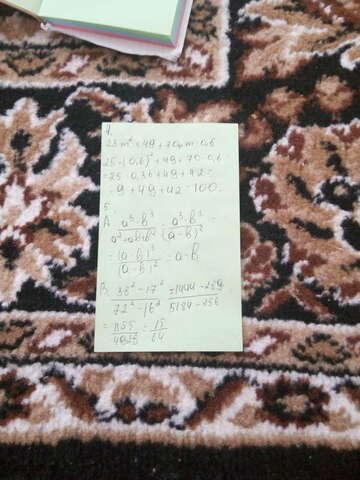 4.
25m²+49+70m m=0,6
25·(0,6)²+49+70·0,6=
=25·0,36+49+42=
=9+49+42=100.
5.
A. a³-b³/a²+ab+b² : a³-b³/(a-b)² =
=(a-b)²/(a-b)² = a-b
B. 38²-17²/72²-16² = 1444-289/5184-256
= 1155/4928 = 15/64